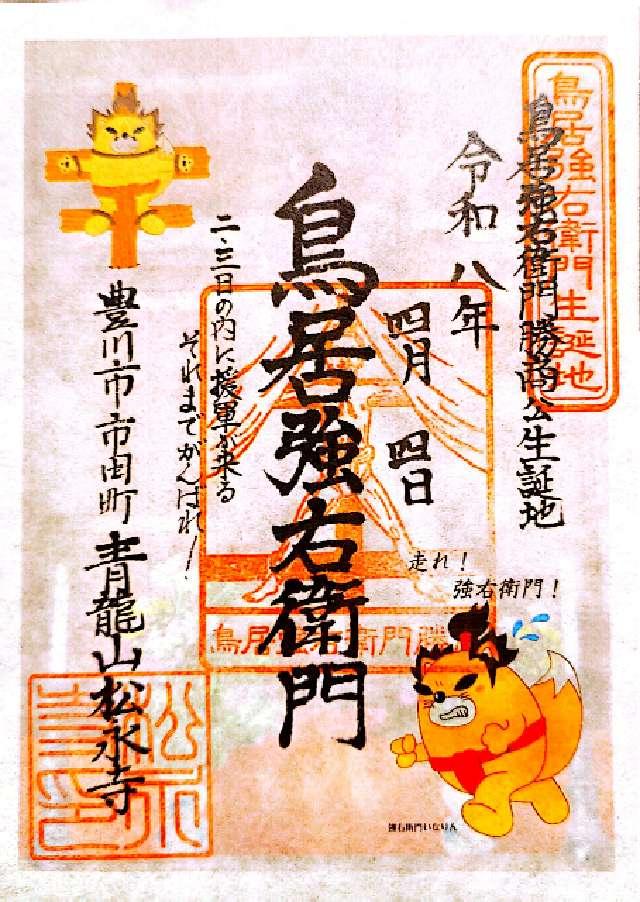 鳥居強右衛門生誕地
鳥居強右衛門勝商公生誕地
令和八年
四月 四日
鳥居強右衛門
二、三日の内に援軍が来る
それまでがんばれ!
豊川市市田町 青龍山松永寺
走れ!
強右衛門!
鳥居強右衛門勝
強右衛門いなりん